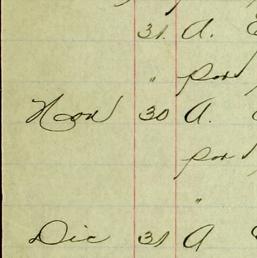 31. A.
" por
Nov 30 A.
por
"
Dic 31 A